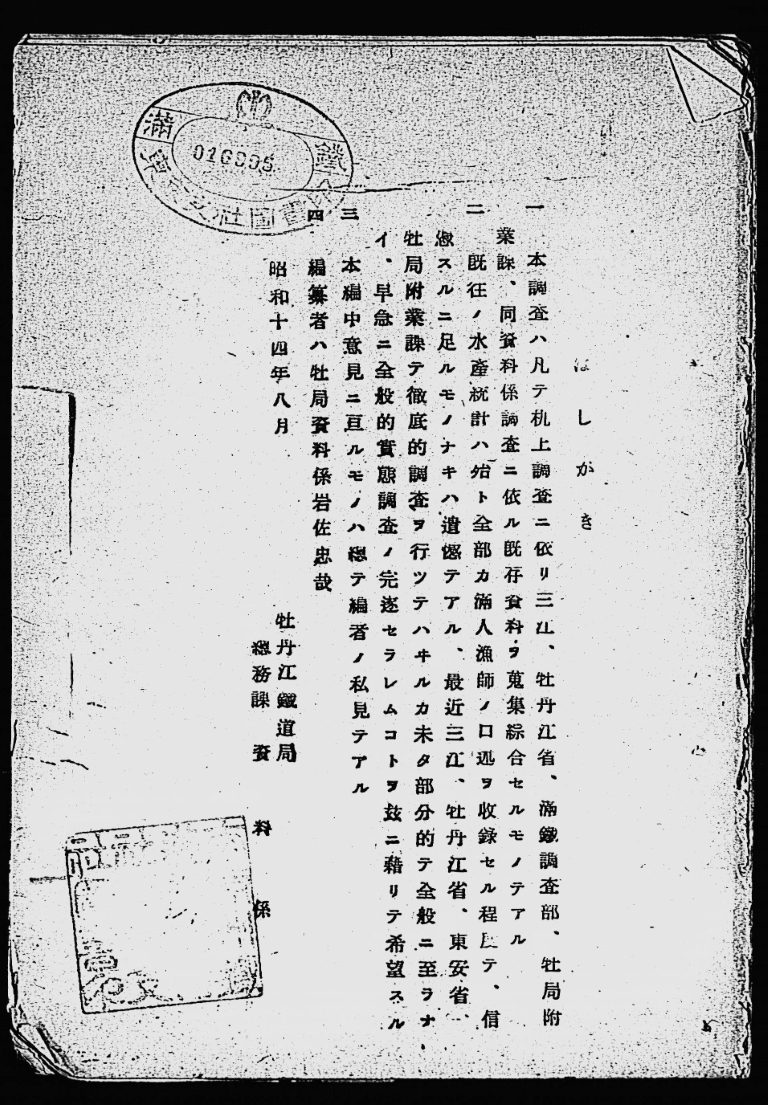 はしがき
一 本調査ハ凡テ机上調査ニ依リ三江、牡丹江省、滿鐵調査部、牡局附
業課、同資料係調査ニ依ル既存資料ヲ蒐集綜合セルモノテアル
二 既往ノ水產統計ハ殆ト全部カ滿人漁師ノ口述ヲ收錄セル程度テ、信
憑スルニ足ルモノナキハ遺憾テアル、最近三江、牡丹江省、東安省、
牡局附業課テ徹底的調査ヲ行ツテハヰルカ未タ部分的テ全般ニ至ラナ
イ、早急ニ全般的實態調査ノ完逐セラレムコトヲ玆ニ藉リテ希望スル
三 本編中意見ニ亘ルモノハ總テ編者ノ私見テアル
四 編纂者ハ牡局資料係岩佐忠哉
昭和十四年八月
牡丹江鐵道局
總務課 資料係
滿鐵
016005
支社圖書